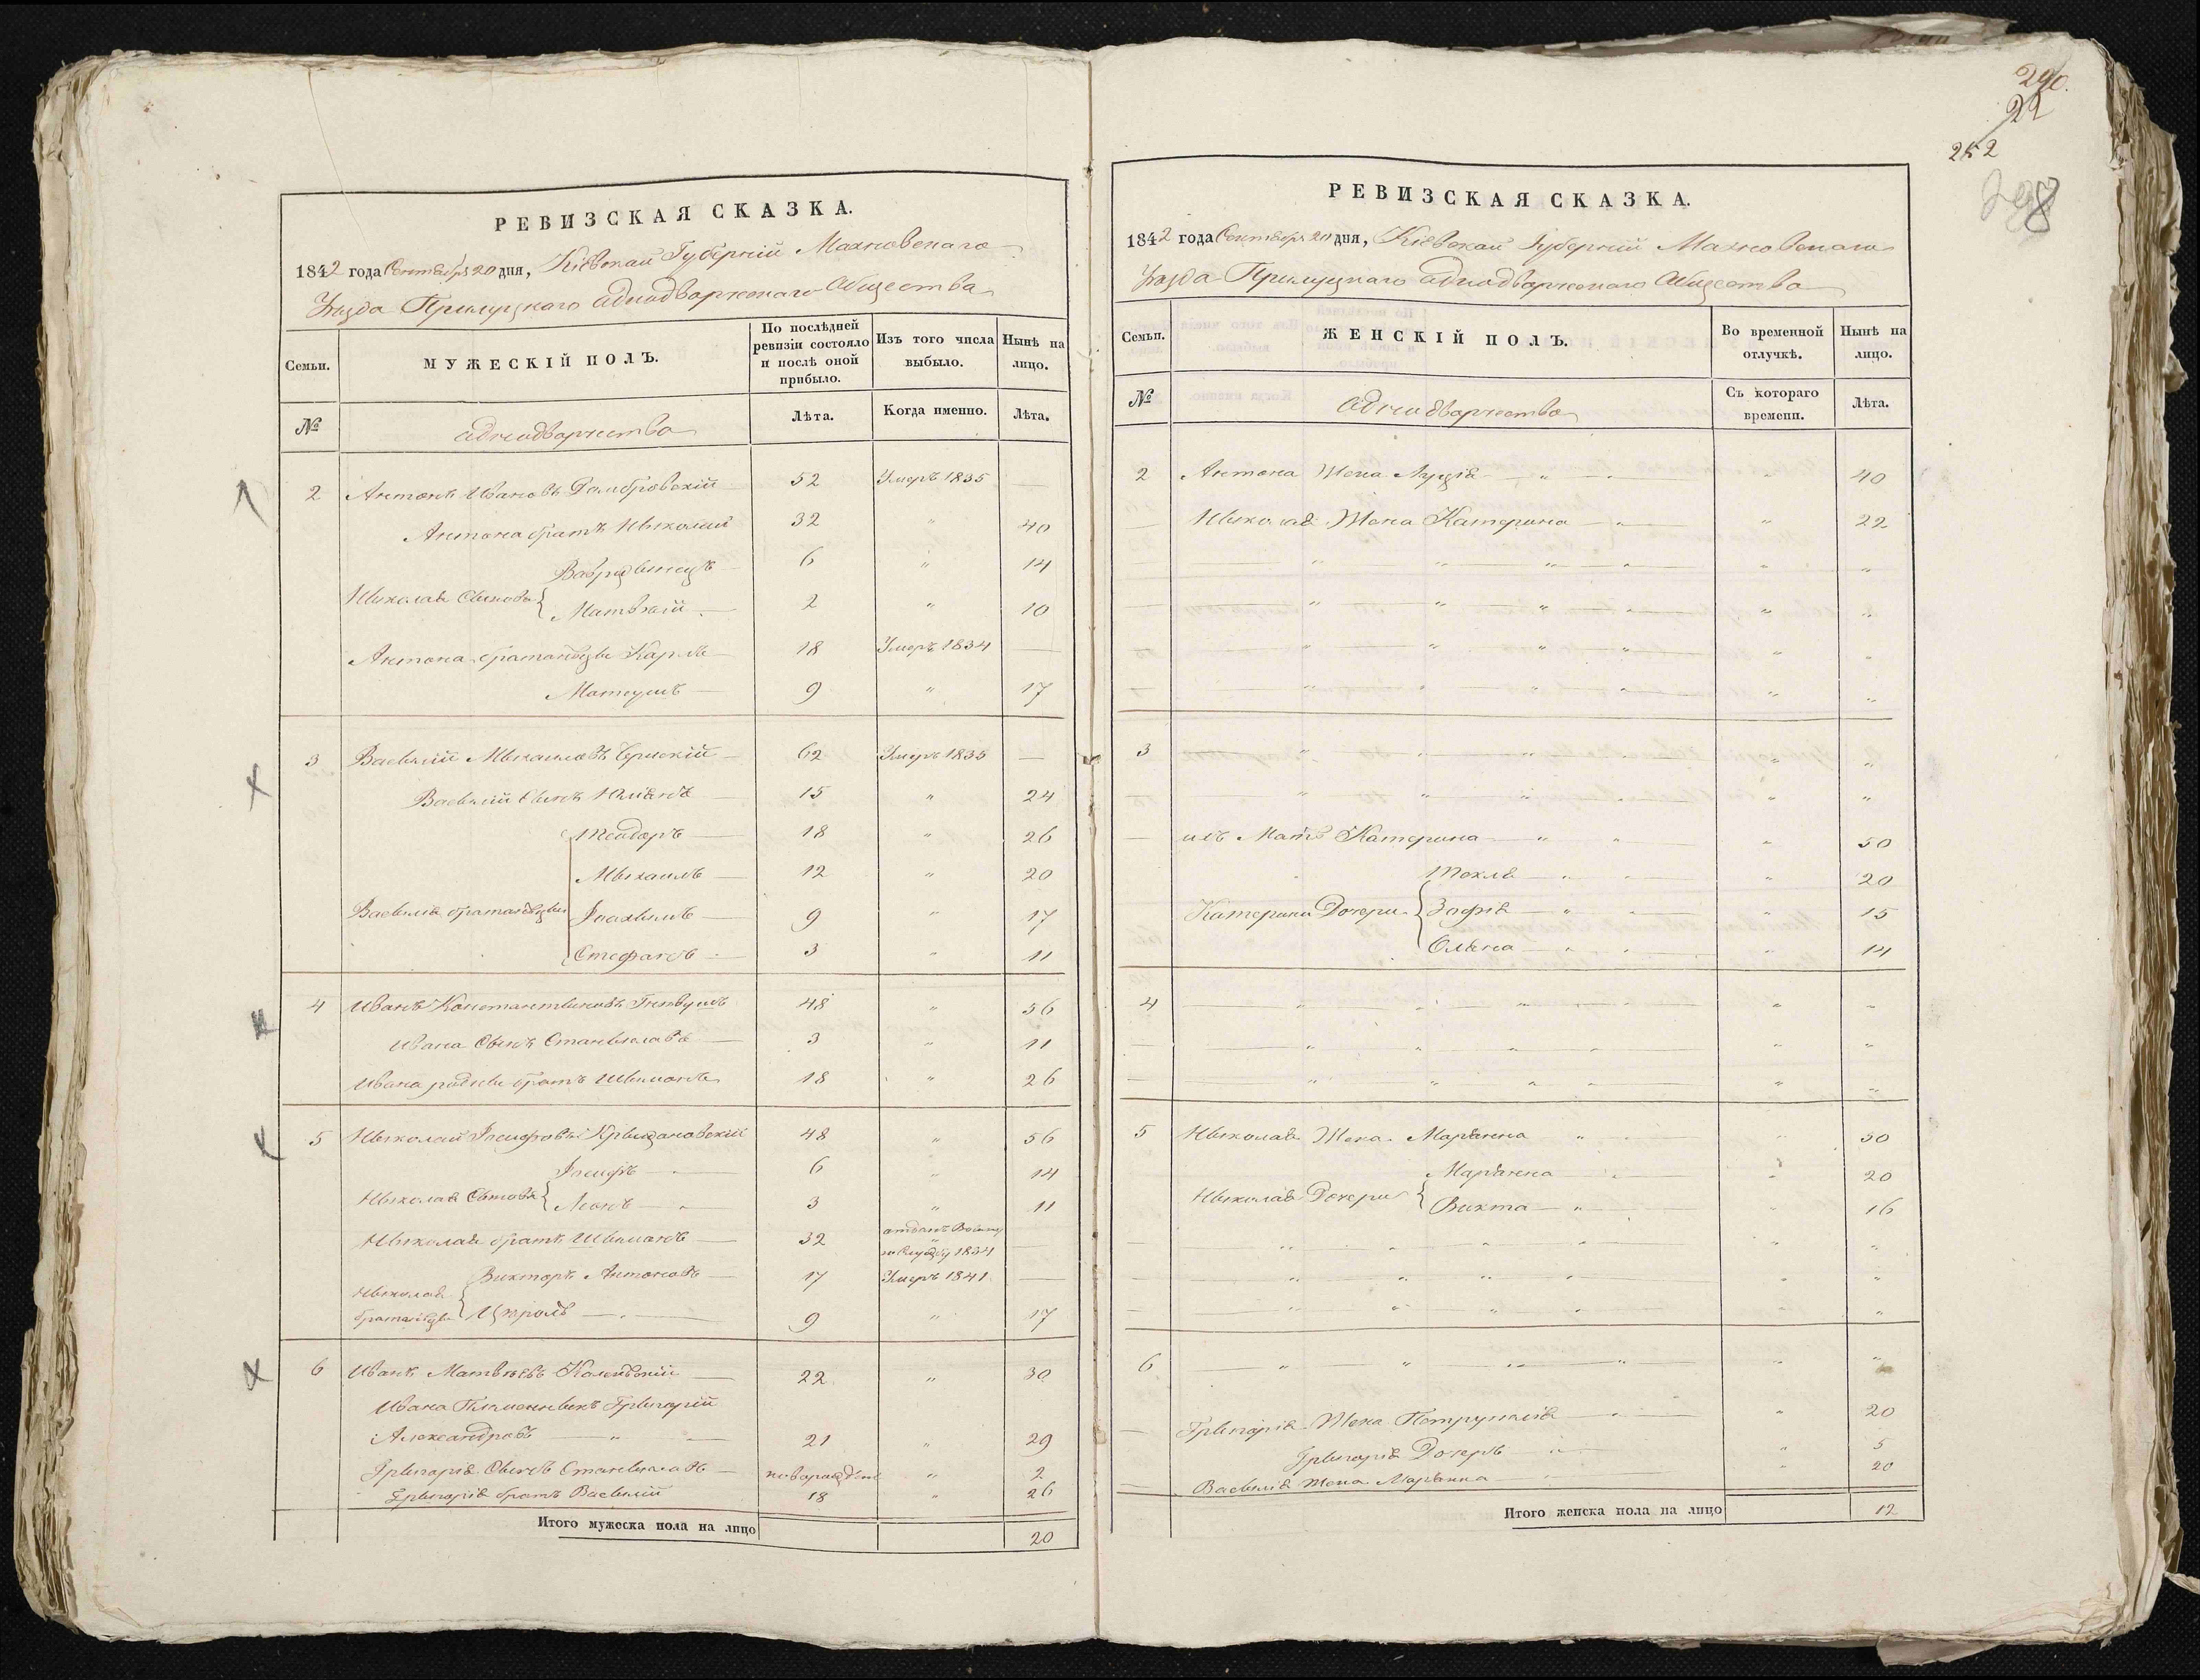 290.
22
252
298
РЕВИЗСКАЯ СКАЗКА.
1842 года Сентября 20 дня, Кіевской Губерніи Махновскаго
Уезда Прилуцкаго аднодворческаго Общества
Семьи.
МУЖЕСКІЙ ПОЛЪ.
По послѣдней ревизіи состояло и послѣ оной прибыло.
Изъ того числа выбыло.
Нынѣ на лицо.
№
аднодворчества
Лѣта.
Когда именно.
Лѣта.
2 Антонъ Ивановъ Домбровскій 52 Умеръ 1835 —
Антона братъ Николай 32 " 40
Вавришинецъ 6 " 14
Николая Сынова { Матвѣй 2 " 10
Антона братаньцы Карль 18 Умеръ 1834 —
Матеушъ 9 " 17
3 Василій Михаиловъ 62 Умеръ 1835 —
Василій Сынъ Юліянъ 15 " 24
Теодоръ 18 " 26
Михаилъ 12 " 20
Василія братаньцы Іоахимъ 9 " 17
Стефанъ 3 " 11
4 Иванъ Константиновъ 48 " 56
Ивана Сынъ Станиславъ 3 " 11
Ивана родный братъ Шимонъ 18 " 26
5 Николай Іосифовъ Крыжановскій 48 " 56
Іосифъ 6 " 14
Николая Сынова { Леонъ 3 " 11
Николая братъ Шимонъ 32 отданъ Воѣнну на Службу 1834 —
Викторъ Антоновъ 17 Умеръ 1841 —
Николая братаньцы { Кароль 9 " 17
6 Иванъ Матвѣевъ 22 " 30
Ивана Племенникъ Григорій
Александровъ 21 " 29
Григорія Сынъ Станиславъ новорожден " 2
Григорія братъ Василій 18 " 26
Итого мужеска пола на лицо 20
РЕВИЗСКАЯ СКАЗКА.
1842 года Сентября 20 дня, Кіевской Губерніи Махновскаго
Уезда Прилуцкаго аднодворческаго Общества
Семьи.
ЖЕНСКІЙ ПОЛЪ.
Во временной отлучкѣ.
Нынѣ на лицо.
№
аднодворчества
Съ котораго времени.
Лѣта.
2 Антона Жена Луція " 40
Николая Жена Катерина " 22
3
ихъ Мать Катерина " 50
Текля " 20
Катерини Дочери { Зофія " 15
Олена " 14
4
5 Николая Жена Маріянна " 50
Маріянна " 20
Николая Дочери { Викта " 16
6
Григорія Жена Петрунеля " 20
Григорія Дочерь " 5
Василія Жена Маріянна " 20
Итого женска пола на лицо 12